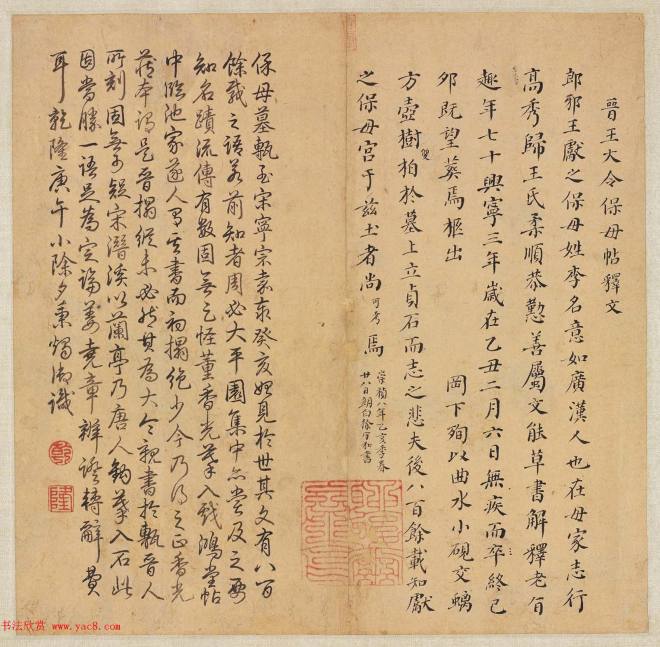 晉王大令保母帖釋文
郎邪王獻之保母姓李名意如廣漢人也在母家志行
高秀歸王氏柔順恭懃善屬文能草書解釋老旨
趣年七十興寧三年歲在乙丑二月六日無疾而卒終已
夘既望葬焉柩出 岡下殉以曲水小硯交螭
方壺樹柏雙於墓上立貞石而志之悲夫後八百餘載知獻
之保母宮于茲土者尚可考焉
崇禎八年乙亥季春
廿八日朗白徐守和書
保母墓甎至宋寧宗嘉泰癸亥始見於世其文有八百
餘載之語若前知者周必大平園集中亦嘗及之要
知名蹟流傳有數固無足怪董香光摹入戲鴻堂帖
中臨池家遂人習其書而初搨絕少今乃得之正香光
藏本謂是晉搨縱未必然其為大令親書於甎晉人
所刻固無可疑宋潛溪以蘭亭乃唐人鉤摹入石此
固當勝一語足為定論姜堯章辨證轉辭費
耳乾隆庚午小除夕秉燭御識
乾
隆
书法欣赏 www.yac8.com